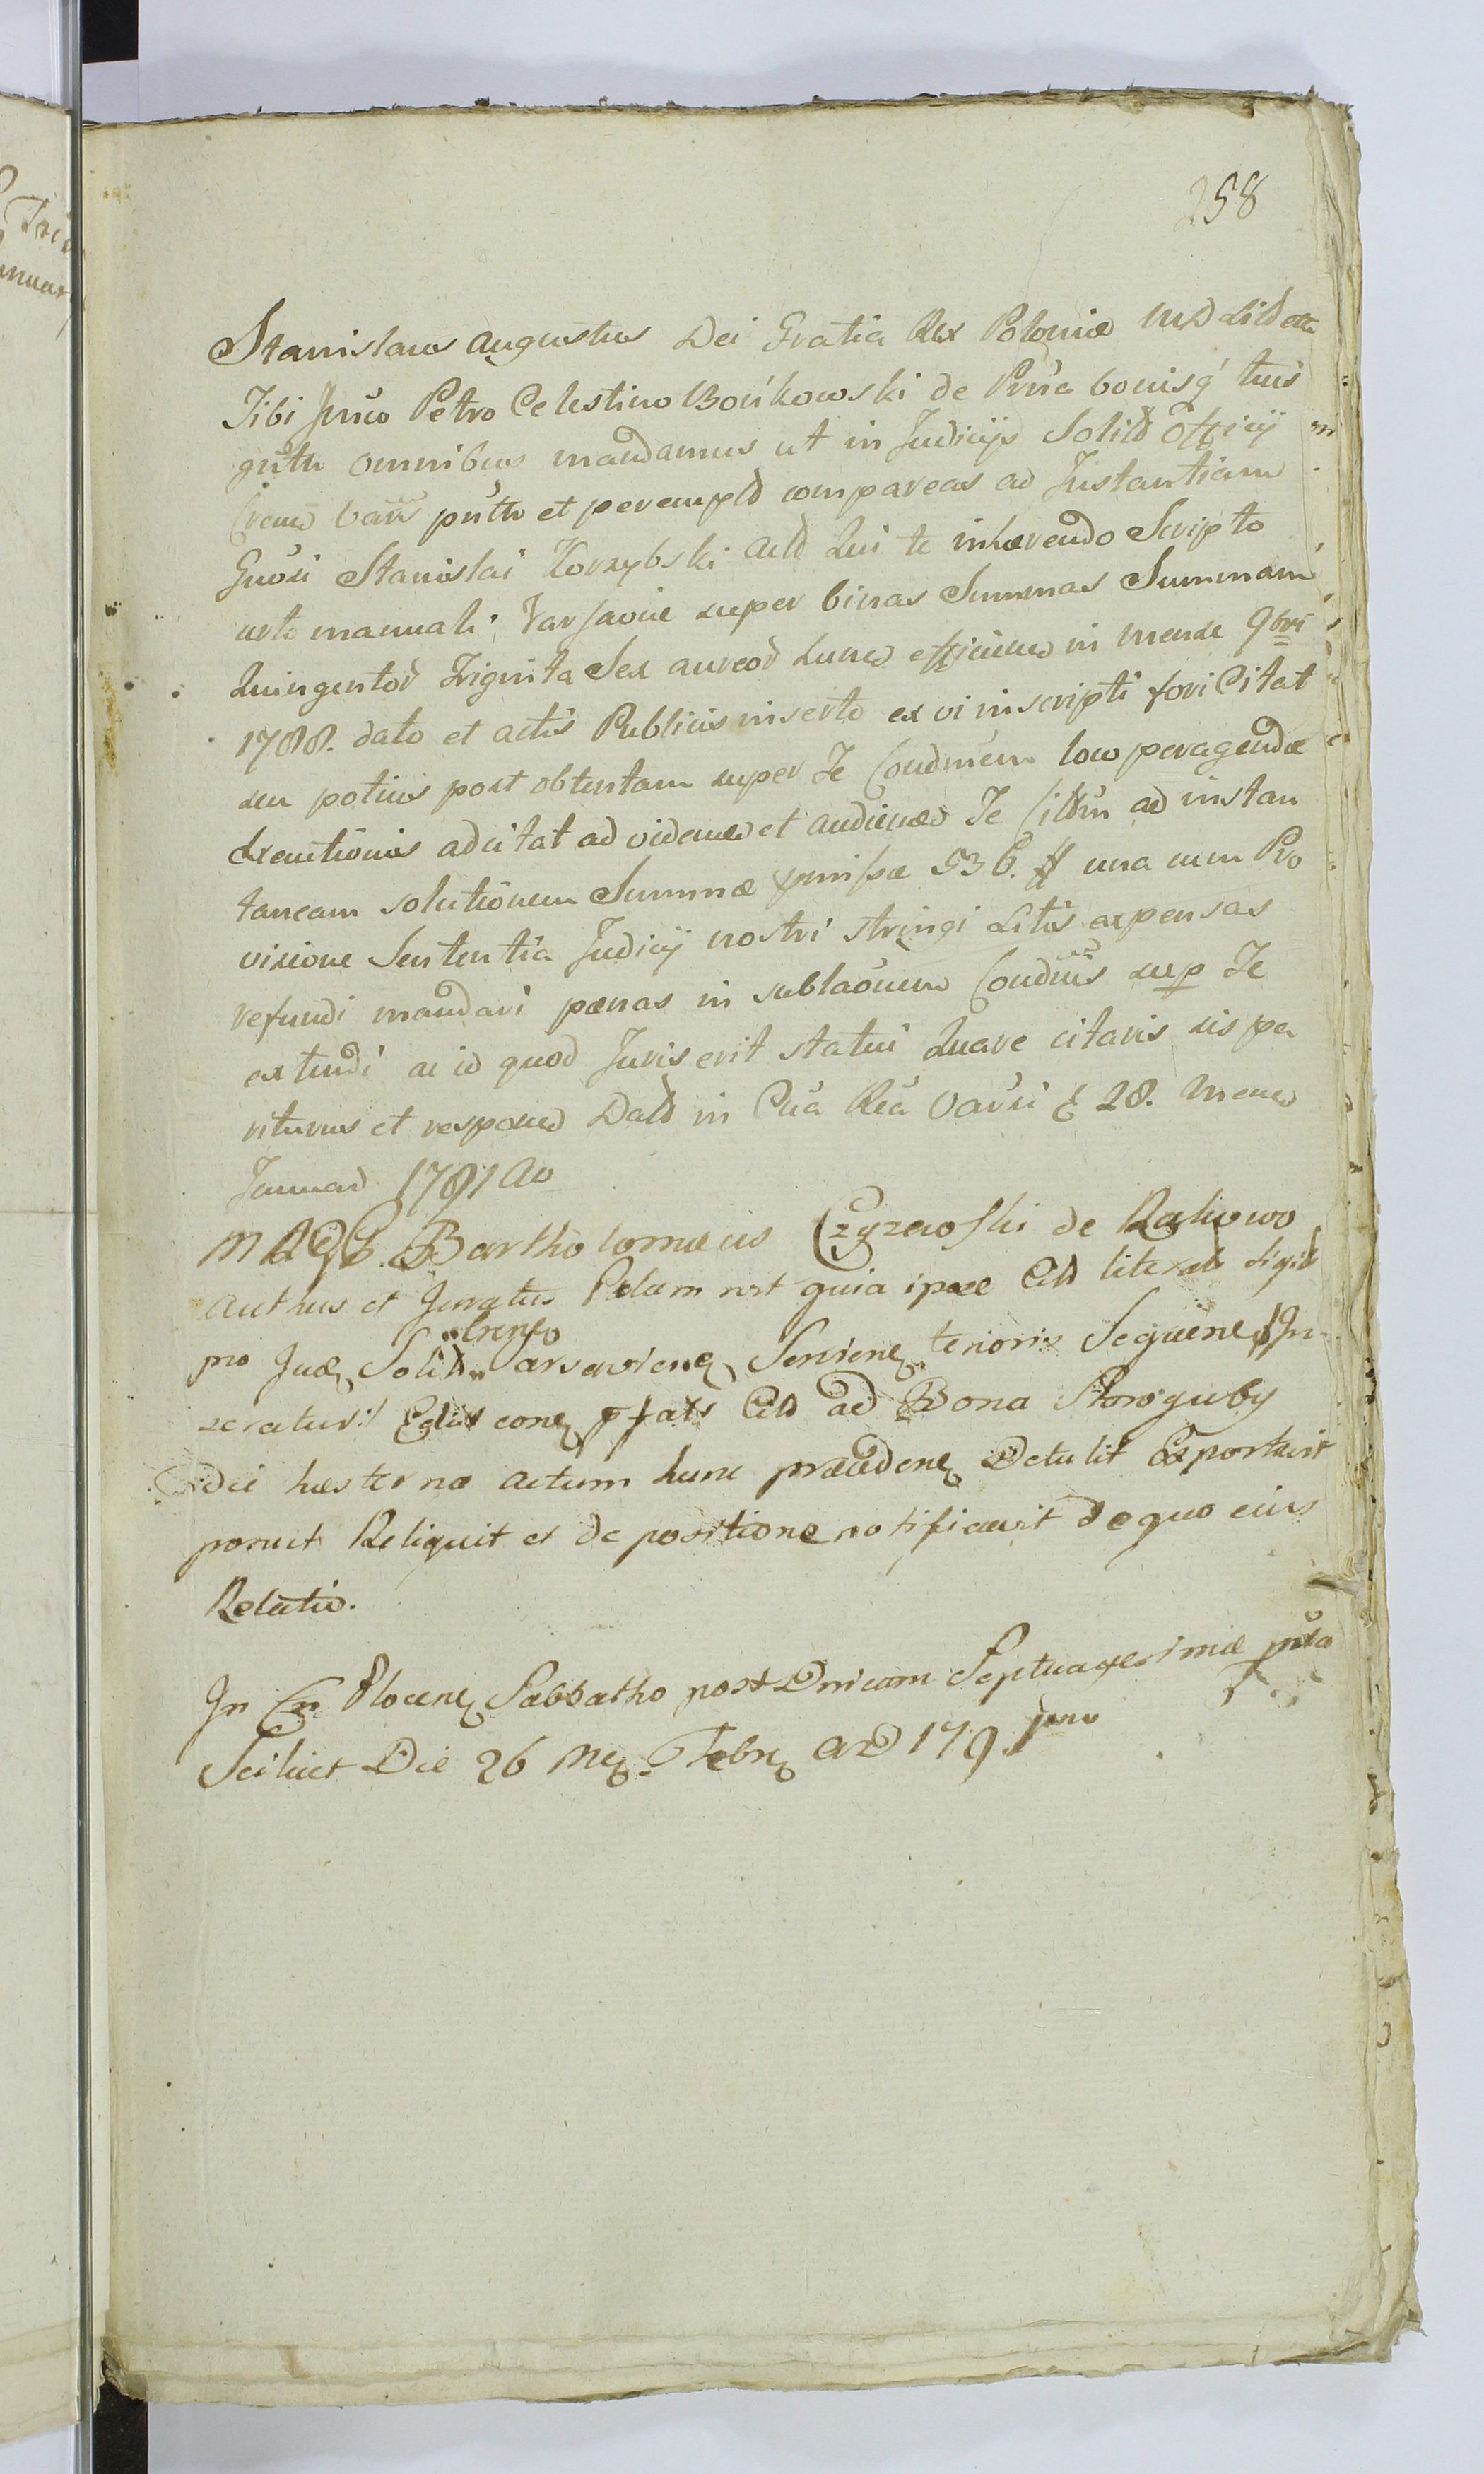 258
Stanislaus Augustus Dei Gratia Rex Poloniæ MD Lith etc
Tibi Petro Celestino Bońkowski de Prsa bonisq tuis
gntr omnibus mandamus ut in Judicijs Solit Officij
Crem Varś pntr et perempt compareas ad Instantiam
Gnosi Stanislai Korzybski Act Qui te inhærendo Scripto
certo manuali Varsaviæ super binas Summas Summam
Quingentor Trignita Sex aureor hunc efficien in mense 9bri
1788. dato et actis Publicis inserto ex vi inscripti fori Citat
seu potius post obtentam super Te Condmem loco peragendæ
Exeutionis adcitat ad videned et audiened Te Citatum ad instan
taneam solutionem Summæ pmissæ 536. ## una cum Pro
visione Sententia Judicij nostri stringi Litis expensas
refundi mandari pænas in sublaonem Condnis sup Te
extendi ac id quod Juris erit statui Quare citaris sis pa
riturus et respons Datt in Cria Rea Varsi d 28. Mens
Januar 1791 Ao
Bartholomæus Czyzewoski de Rakowo
Authus et Juratus Palam rest quia ipse Citt literat sigil
pro Jud Solit arsavien Servien tenoris Sequene Jn
Crensto
seratur :/ cone pfats Citt ad Bona Storoguby
die hæsterna actum hunc præcedene Detulit Exportavit
posuit Reliquit et de positione notificavit de quo eius
Relatio.
Jn Cro Plocene Sabbatho post Dnicam Septuagesimæ pxia
Scilicet Die 26 Me Febr AD 179 pmo